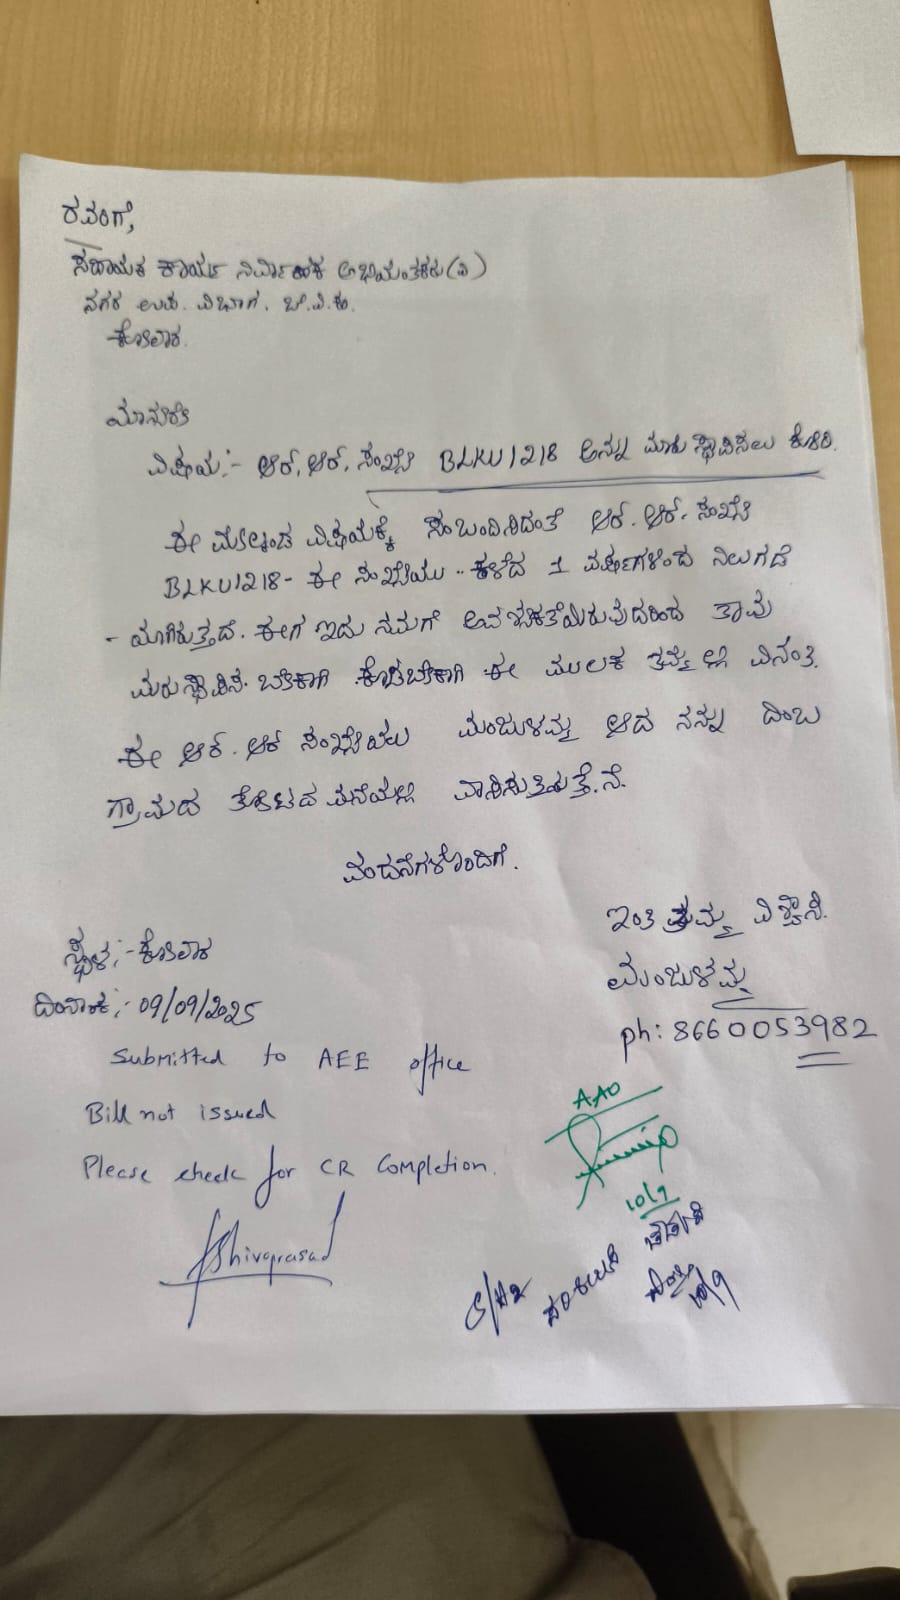 ರವರಿಗೆ,
ಸಹಾಯಕ ಕಾರ್ಯ ನಿರ್ವಾಹಕ ಅಭಿಯಂತಕರು(ವಿ)
ನಗರ ಉಪ. ವಿಭಾಗ. ಬೆ.ವಿ.ಕಂ.
ಕೋಲಾರ.
ಮಾನ್ಯರೇ
ವಿಷಯ:- ಆರ್. ಆರ್. ಸಂಖ್ಯೆ BLKU1218 ಅನ್ನು ಮಾರು ಸ್ಥಾಪಿಸಲು ಕೋರಿ.
ಈ ಮೇಲ್ಕಂಡ ವಿಷಯಕ್ಕೆ ಸಂಬಂದಿಸಿದಂತೆ ಆರ್. ಆರ್. ಸಂಖ್ಯೆ
BLKU1218- ಈ ಸಂಖ್ಯೆಯು ಕಳೆದ 1 ವರ್ಷಗಳಿಂದ ನಿಲುಗಡೆ
- ಯಾಗಿರುತ್ತದೆ. ಈಗ ಇದು ನಮಗೆ ಅವಶ್ಯಕತೆಯಿರುವುದರಿಂದ ತಾವು
ಮರುಸ್ಥಾಪಿಸಿ. ಬೇಕಾಗಿ ಕೊಡಬೇಕಾಗಿ ಈ ಮುಲಕ ತಮ್ಮಲ್ಲಿ ವಿನಂತಿ.
ಈ ಆರ್. ಆರ್ ಸಂಖ್ಯೆಯಲು ಮಂಜುಳಮ್ಮ ಆದ ನನ್ನು ದಿಂಬ
ಗ್ರಾಮದ ತೋಟದ ಮನೆಯಲ್ಲಿ ವಾಸಿಸುತ್ತಿರುತ್ತೇ.ನೆ.
ವಂದನೆಗಳೊಂದಿಗೆ.
ಇಂತಿ ತಮ್ಮ ವಿಶ್ವಾಸಿ.
ಸ್ಥಳ:- ಕೋಲಾರ
ಮಂಜುಳಮ್ಮ
ದಿನಾಂಕ:- 09/09/2025
ph: 8660053982
Submitted to AEE office
Bill not issued
AAO
Please check for CR Completion.
10/9
Shivaprasad
10/9